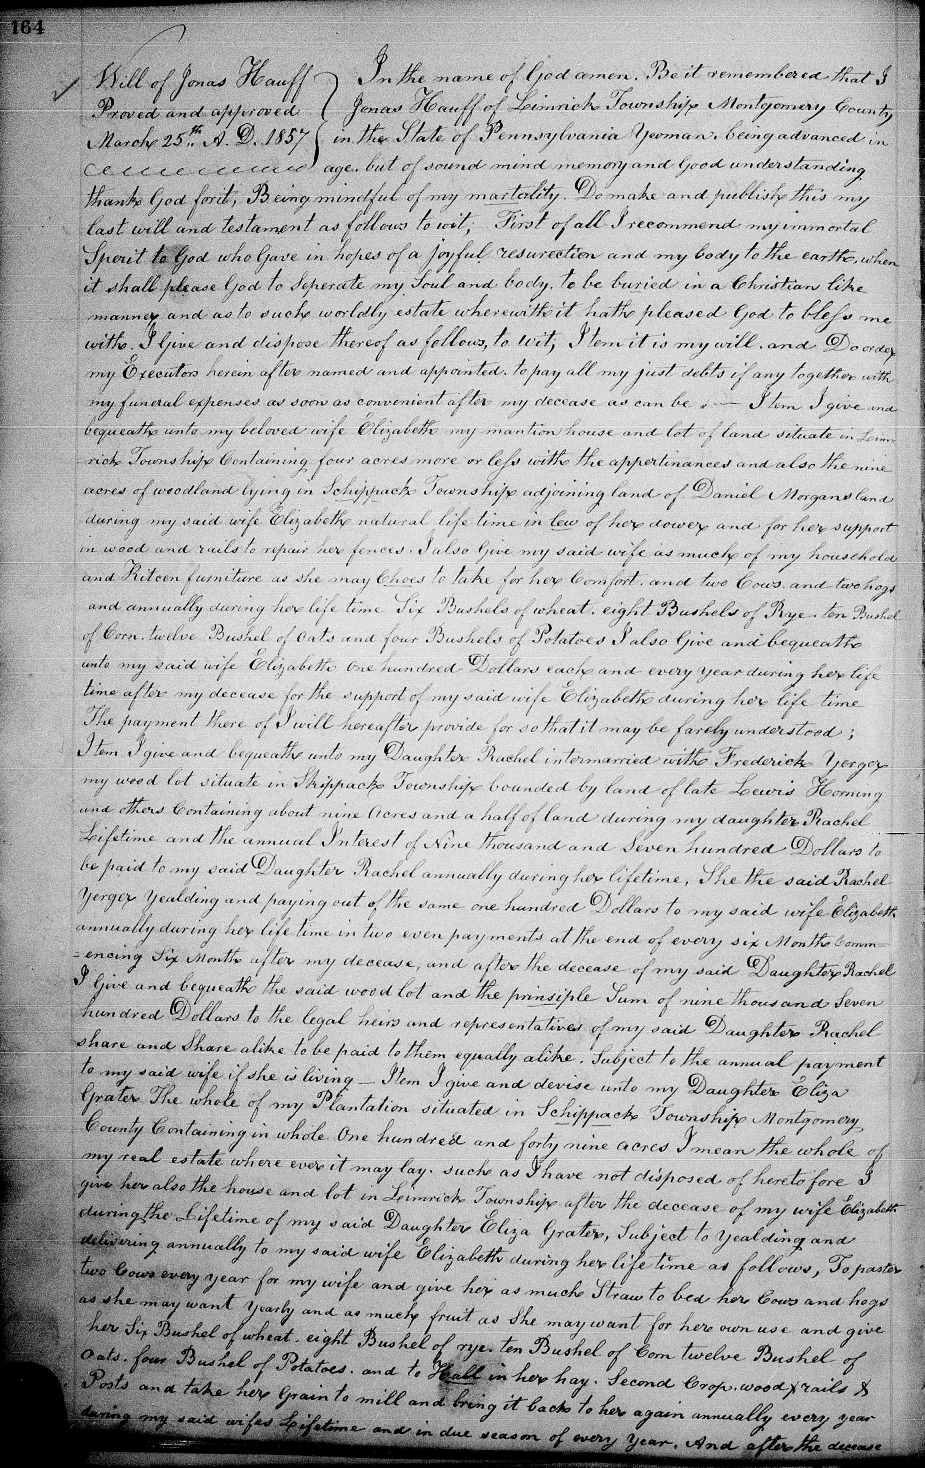 164
Will of Jonas Hauff
Proved and approved
March 25th A. D. 1857
In the name of God amen. Be it remembered that I
Jonas Hauff of Limrick Township Montgomery County
in the State of Pennsylvania Yeoman. being advanced in
age. but of sound mind memory and Good understanding
thank God forit, Being mindful of my martality. Do make and publish this my
last will and testament as follows to wit; First of all I recommend my immortal
Sperit to God who Gave in hopes of a joyful resurection and my body to the earth, when
it shall please God to Seperate my Soul and body. to be buried in a Christian like
manner and as to such worldly estate wherewith it hath pleased God to bless me
with. I Give and dispose thereof as follows, to wit, Item it is my will. and Do order
my Executors herein after named and appointed. to pay all my just debts if any together with
my funeral expenses as soon as convenient after my decease as can be. — Item I give and
bequeath unto my beloved wife Elizabeth my mantion house and lot of land situate in Lim-
rick Township Containing four acres more or less with the appertinances and also the nine
acres of woodland lying in Schippack Township adjoining land of Daniel Morgans land
during my said wife Elizabeth natural life time in lew of her dower and for her support
in wood and rails to repair her fences. I also Give my said wife as much of my household
and Kitcen furniture as she may Choes to take for her Comfort. and two Cows. and two hogs
and annually during her life time Six Bushels of wheat. eight Bushels of Rye. ten Bushel
of Corn. twelve Bushel of oats and four Bushels of Potatoes I also Give and bequeath
unto my said wife Elizabeth One hundred Dollars each and every year during her life
time after my decease for the support of my said wife Elizabeth during her life time
The payment there of I will hereafter provide for so that it may be farely understood;
Item I give and bequeath unto my Daughter Rachel intermarried with Frederick Yerger
my wood lot situate in Skippack Township bounded by land of late Lewis Horning
and others Containing about nine acres and a half of land during my daughter Rachel
Lifetime and the annual Interest of Nine thousand and Seven hundred Dollars to
be paid to my said Daughter Rachel annually during her lifetime, She the said Rachel
Yerger Yealding and paying out of the same one hundred Dollars to my said wife Elizabeth
annually during her life time in two even payments at the end of every six Month Comm=
=encing Six Month after my decease, and after the decease of my said Daughter Rachel
I Give and bequeath the said wood lot and the prinsiple Sum of nine thousand Seven
hundred Dollars to the legal heirs and representatives of my said Daughter Rachel
share and Share alike to be paid to them equally alike. Subject to the annual payment
to my said wife if she is living — Item I give and devise unto my Daughter Eliza
Grater The whole of my Plantation situated in Schippack Township Montgomery
County Containing in whole One hundred and forty nine acres I mean the whole of
my real estate where ever it may lay. such as I have not disposed of heretofore I
give her also the house and lot in Limrick Township after the decease of my wife Elizabeth
during the Lifetime of my said Daughter Eliza Grater, Subject to Yealding and
delivering annually to my said wife Elizabeth during her life time as follows, To paster
two Cows every year for my wife and give her as much Straw to bed her Cows and hogs
as she may want yearly and as much fruit as She may want for her own use and give
her Six Bushel of wheat. eight Bushel of rye. ten Bushel of Corn twelve Bushel of
oats. four Bushel of Potatoes. and to Hall in her hay. Second Crop. wood & rails &
Posts and take her Grain to mill and bring it back to her again annually every year
during my said wifes Lifetime and in due season of every Year. And after the decease